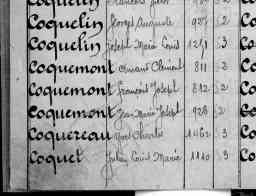 Coquelin
Coquelin Georges Auguste 927 2
Coquelin Joseph Marie Louis 3
Coquemont Clément 811 2
Coquemont François Joseph 812 2
Coquemont Jean Marie Joseph 928 2
Coquereau Charles 1162 3
Coquet Julien Louis Marie 1140 3